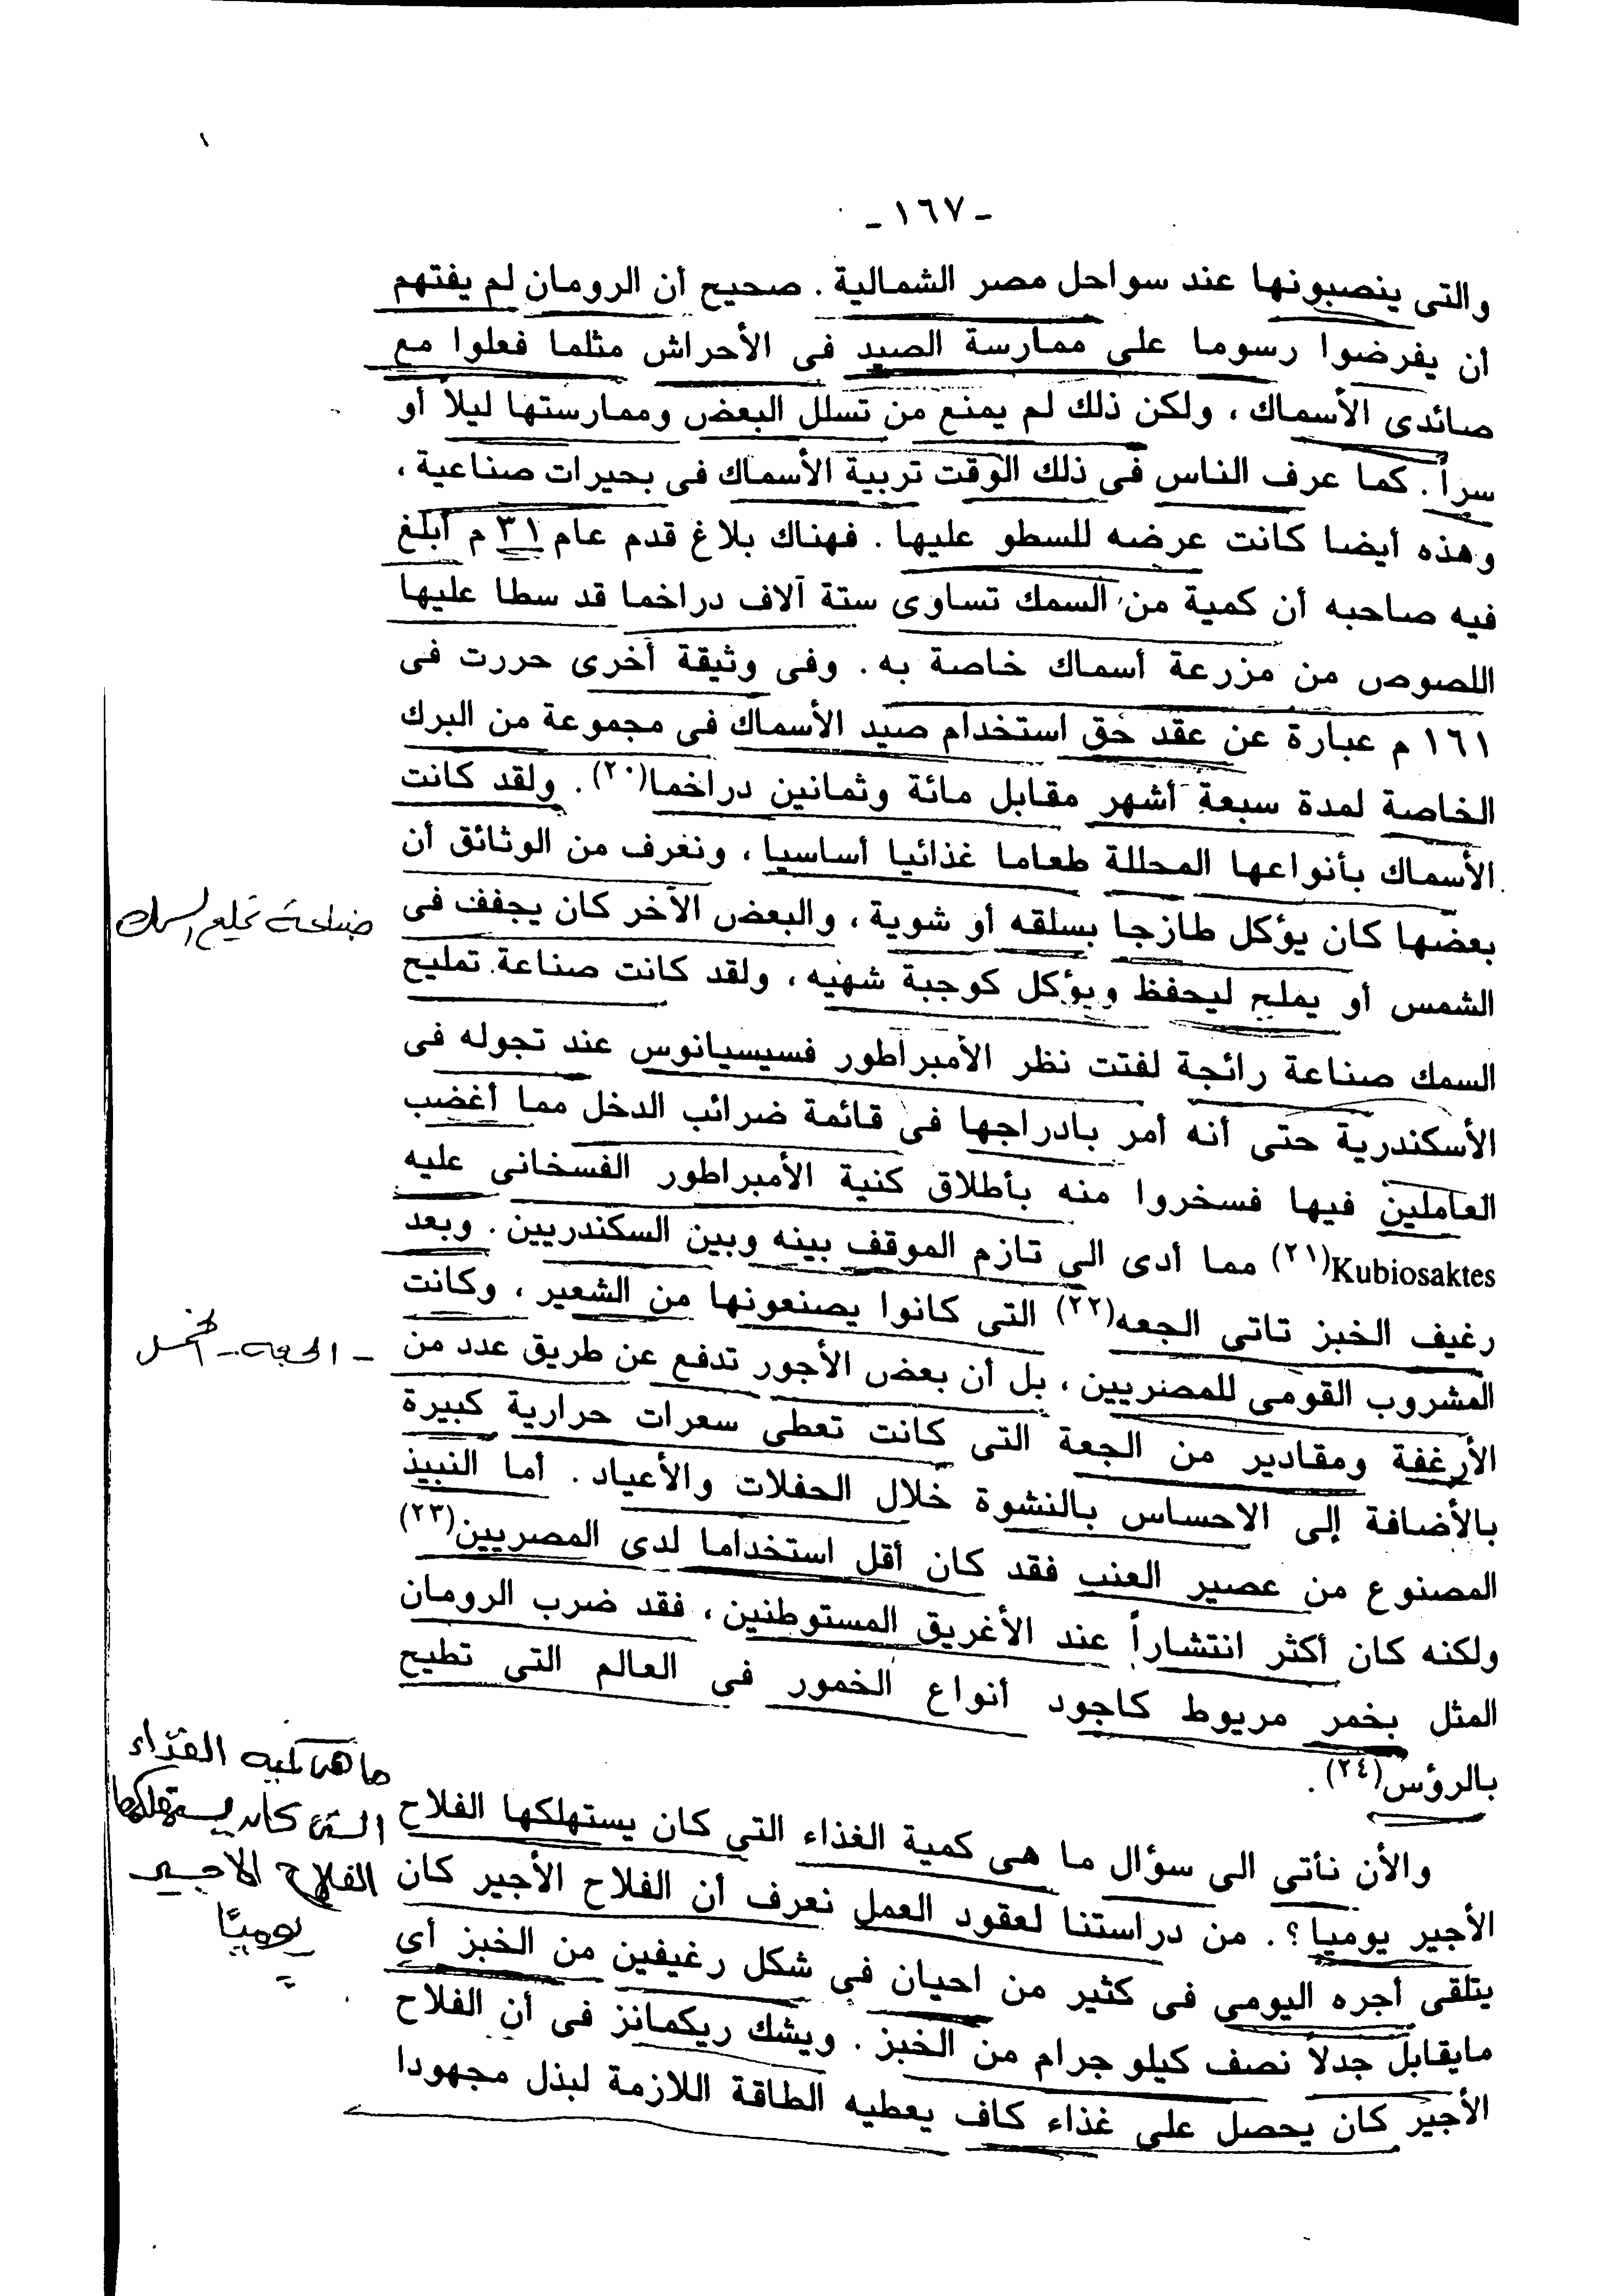 - ١٦٧ -
والتى ينصبونها عند سواحل مصر الشمالية . صحيح أن الرومان لم يفتهم
أن يفرضوا رسوما على ممارسة الصيد فى الأحراش مثلما فعلوا مع
صائدى الأسماك ، ولكن ذلك لم يمنع من تسلل البعض وممارستها ليلاً أو
سراً . كما عرف الناس فى ذلك الوقت تربية الأسماك فى بحيرات صناعية ،
وهذه أيضا كانت عرضه للسطو عليها . فهناك بلاغ قدم عام ٣١ م أبلغ
فيه صاحبه أن كمية من السمك تساوى ستة آلاف دراخما قد سطا عليها
اللصوص من مزرعة أسماك خاصة به . وفى وثيقة أخرى حررت فى
١٦١ م عبارة عن عقد حق استخدام صيد الأسماك فى مجموعة من البرك
الخاصة لمدة سبعة أشهر مقابل مائة وثمانين دراخما(٢٠) . ولقد كانت
الأسماك بأنواعها المحللة طعاما غذائيا أساسيا ، ونعرف من الوثائق أن
بعضها كان يؤكل طازجا بسلقه أو شوية ، والبعض الآخر كان يجفف فى
صناعة تمليح السمك
الشمس أو يملح ليحفظ ويؤكل كوجبة شهيه ، ولقد كانت صناعة تمليح
السمك صناعة رائجة لفتت نظر الأمبراطور فسيسيانوس عند تجوله فى
الأسكندرية حتى أنه أمر بادراجها فى قائمة ضرائب الدخل مما أغضب
العاملين فيها فسخروا منه بأطلاق كنية الأمبراطور الفسخانى عليه
Kubiosaktes(٢١) مما أدى الى تازم الموقف بينه وبين السكندريين . وبعد
رغيف الخبز تاتى الجعه(٢٢) التى كانوا يصنعونها من الشعير ، وكانت
المشروب القومى للمصريين ، بل أن بعض الأجور تدفع عن طريق عدد من
الأرغفة ومقادير من الجعة التى كانت تعطى سعرات حرارية كبيرة
بالأضافة إلى الاحساس بالنشوة خلال الحفلات والأعياد . أما النبيذ
المصنوع من عصير العنب فقد كان أقل استخداما لدى المصريين(٢٣)
ولكنه كان أكثر انتشاراً عند الأغريق المستوطنين ، فقد ضرب الرومان
المثل بخمر مريوط كاجود أنواع الخمور فى العالم التى تطيح
بالرؤس(٢٤) .
والأن نأتى الى سؤال ما هى كمية الغذاء التى كان يستهلكها الفلاح
ما هى كمية الغذاء
التى كان يستهلكها
الفلاح الأجير
يوميًا
الأجير يوميا ؟ . من دراستنا لعقود العمل نعرف أن الفلاح الأجير كان
يتلقى أجره اليومى فى كثير من احيان فى شكل رغيفين من الخبز أى
مايقابل جدلاً نصف كيلو جرام من الخبز . ويشك ريكمانز فى أن الفلاح
الأجير كان يحصل على غذاء كاف يعطيه الطاقة اللازمة لبذل مجهودا